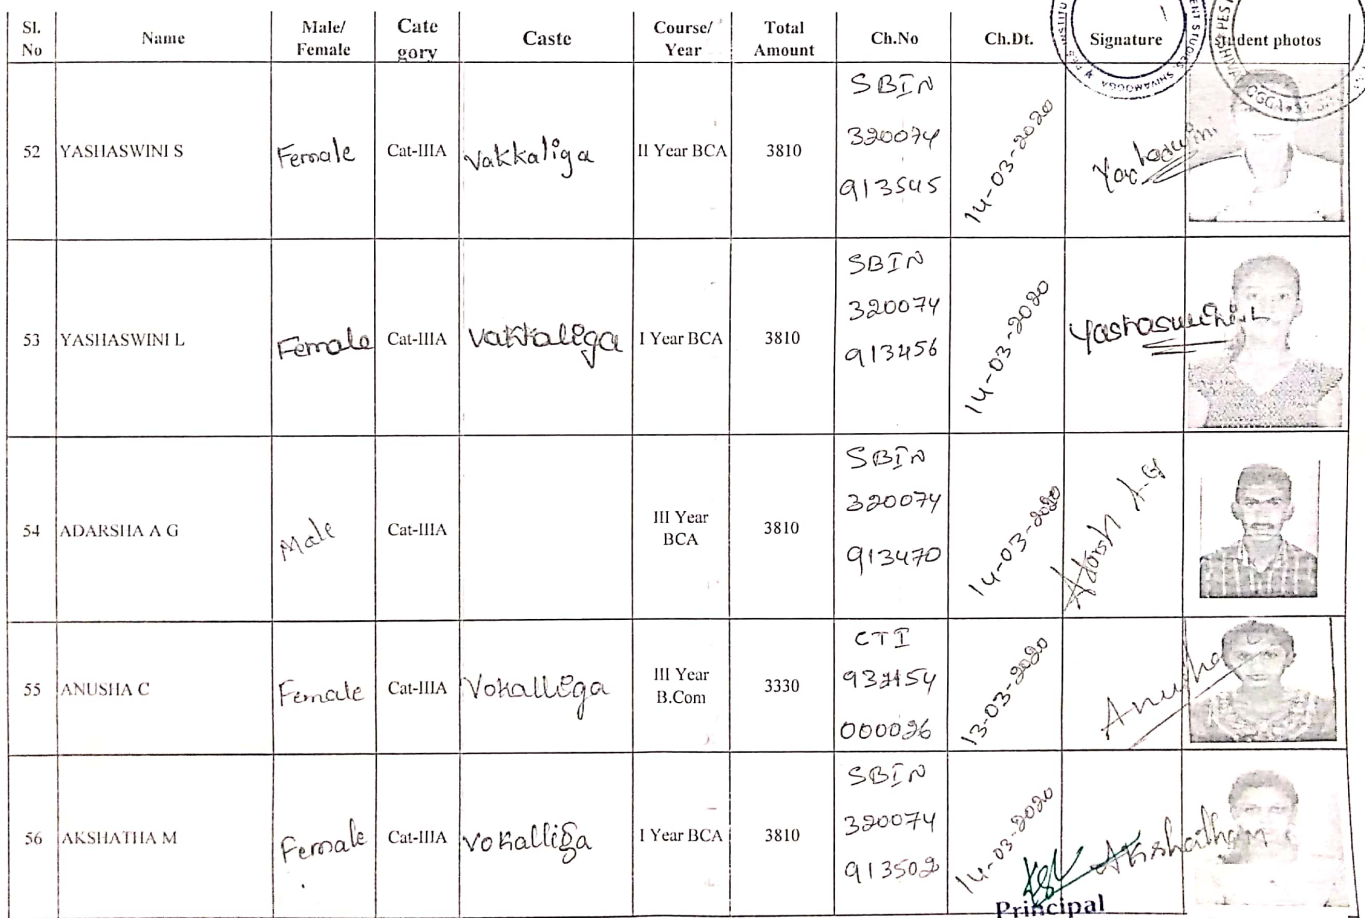 Sl. No Name Male/ Female Cate gory Caste Course/ Year Total Amount Ch.No Ch.Dt. Signature Student photos
52 YASHASWINI S Female Cat-IIIA Vakkaliga II Year BCA 3810 SBIN 320074 913545 14-03-2020 Yashaswini
53 YASHASWINI L Female Cat-IIIA Vakkaliga I Year BCA 3810 SBIN 320074 913456 14-03-2020 Yashaswini.L
54 ADARSHA A G Male Cat-IIIA III Year BCA 3810 SBIN 320074 913470 14-03-2020 Adarsh A.G
55 ANUSHA C Female Cat-IIIA Vokalliga III Year B.Com 3330 CTI 000026 13-03-2020 Anusha C
56 AKSHATHA M Female Cat-IIIA Vokalliga I Year BCA 3810 SBIN 320074 913502 14-03-2020 Akshatha M
Principal